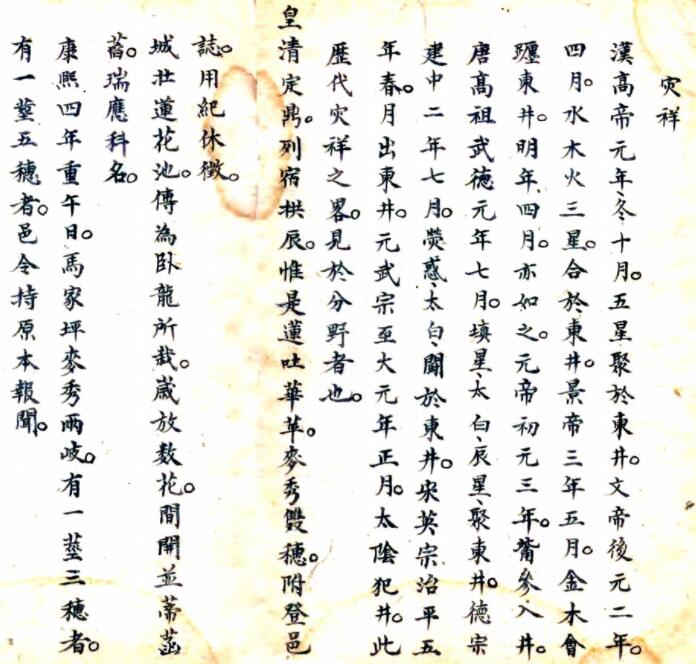 灾祥
漢高帝元年冬十月。五星聚於東井。文帝後元二年。
四月。水木火三星。合於東井。景帝三年五月。金木會
躔東井。明年四月。亦如之。元帝初元三年。觜參入井。
唐高祖武德元年七月。填星、太白、辰星、聚東井。德宗
建中二年七月。熒惑、太白、鬭於東井。宋英宗治平五
年春。月出東井。元武宗至大元年正月。太陰犯井。此
歷代灾祥之畧。見於分野者也。
皇清定鼎。列宿拱辰。惟是蓮吐華苹。麥秀雙穗。附登邑
誌。用紀休徵。
城壯蓮花池。傳為臥龍所栽。歲放数花。間開並蒂菡
萏。瑞應科名。
康熙四年重午日。馬家坪麥秀兩岐。有一莖三穗者。
有一莖五穗者。邑令持原本報聞。